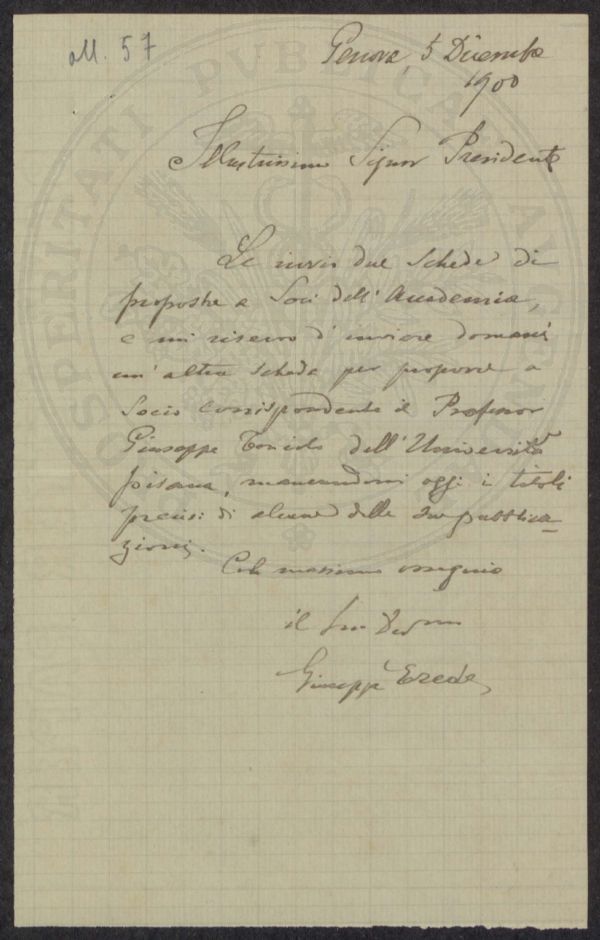 all. 57
Genova, 5 Dicembre
1900
Illustrissimo Signor Presidente
Le invio due schede di
proposte a Soci dell'Accademia,
e mi riservo d'inviare domani
un'altra scheda per proporre a
Socio corrispondente il Professor
Giuseppe Toniolo dell'Università
pisana, mancandomi oggi i titoli
precisi di alcune delle sue pubblica=
zioni.
Col massimo ossequio
il Suo
Giuseppe Erede
PROSPERITATI PUBLICAE AUGENDAE